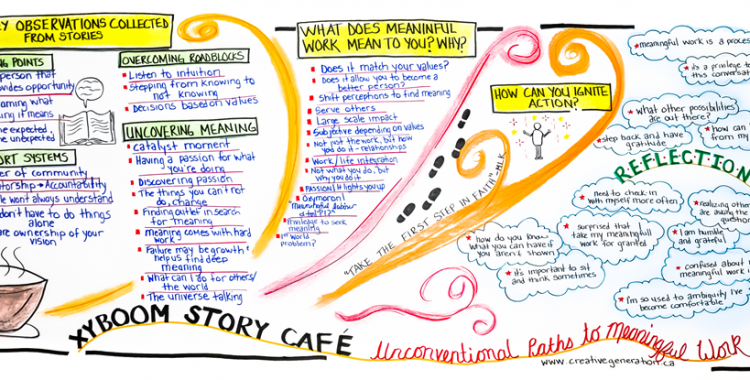 Y OBSERVATIONS COLLECTED
FROM STORIES
NG POINTS
person that
vides opportunity
arning what
ing it means
expected,
unexpected
ORT SYSTEMS
er of community
torship → Accountability
le won't always understand
don't have to do things
alone
are ownership of your
vision
OVERCOMING ROADBLOCKS
Listen to intuition
Stepping from knowing to
not knowing
Decisions based on values
UNCOVERING MEANING
catalyst moment
Having a passion for what
you're doing
Discovering passion
The things you can't not
do, change
Finding outlet in search
for meaning
meaning comes with hard
work
Failure may be growth &
helps find deep
meaning
What can I do for others/
the world
The universe talking
WHAT DOES MEANINFUL
WORK MEAN TO YOU? WHY?
Does it match your values?
Does it allow you to become a
better person?
Shift perceptions to find meaning
Serve others
Large scale impact
Subjective depending on values
Not just the work, but how
you do it - relationships
Work/life integration
Not what you do, but
why you do it
Passion! # lights you up
Oxymoron!
"Meaningful labour
Privledge to seek
meaning
1st world
problem?
"TAKE THE FIRST STEP IN FAITH"-MLK
HOW CAN YOU IGNITE
ACTION?
meaningful work is a proces
it's a privilege t
this conversati
what other possibilities
are out there?
step back and have
gratitude
how can
from my
REFLECTION
need to check-in
with myself more often
realizing othe
are asking the
question
surprised that
take my meaningful
work for granted
I am humble
and grateful
how do you know
what you can have if
you aren't shown
it's important to sit
and think sometimes
confused about
meaningful work
I'm so used to ambiguity I've
become comfortable
XYBOOM STORY CAFÉ
Unconventional Paths to Meaningful Work
www.creativegeneration.ca